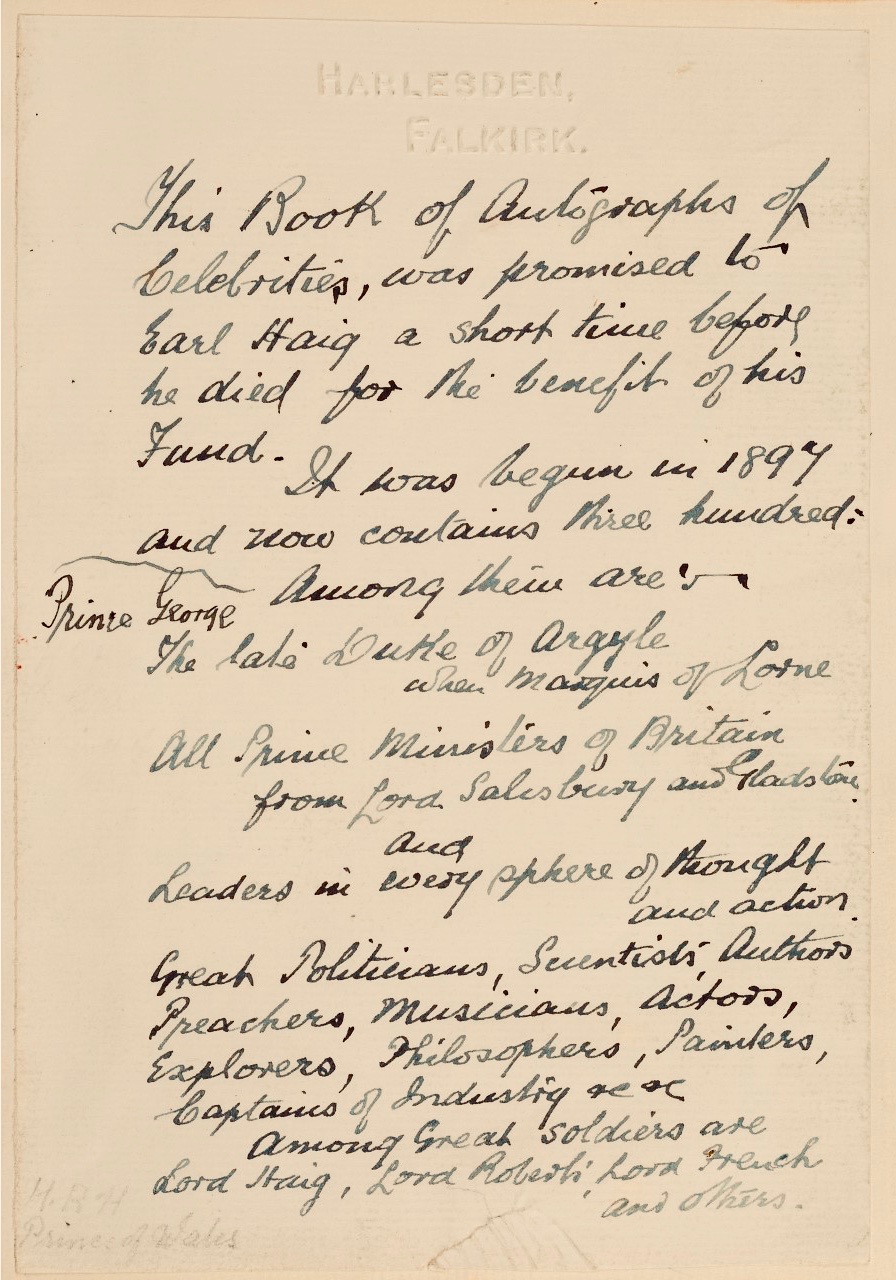 HARLESDEN,
FALKIRK.
This Book of Autographs of
Celebrities, was promised to
Earl Haig a short time before
he died for the benefit of his
Fund.
It was begun in 1897
and now contains three hundred:
Among them are:-
Prince George
The late Duke of Argyle
when Marquis of Lorne
All Prime Ministers of Britain
from Lord Salisbury and Gladstone.
And
Leaders in every sphere of thought
and action.
Great Politicians, Scientists, Authors
Preachers, Musicians, Actors,
Explorers, Philosophers, Painters,
Captains of Industry &c &c
Among Great soldiers are
Lord Haig, Lord Roberts, Lord French
and others.
H.R.H
Prince of Wales